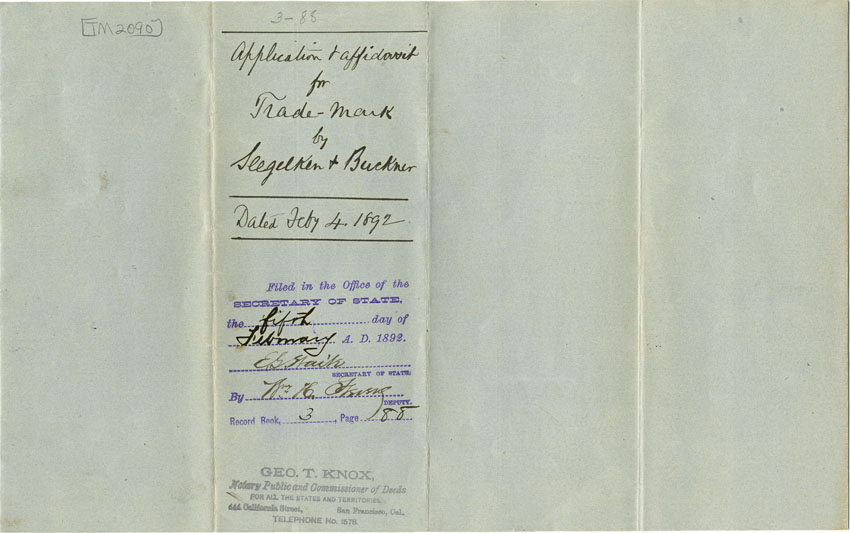 [TM2090]
3-88
Application & affidavit
for
Trade-Mark
by
Seegelken & Buckner
Dated Feby 4 1892
Filed in the Office of the
SECRETARY OF STATE,
the fifth day of
February A. D. 1892.
E. G. Waite
SECRETARY OF STATE
By Wm H.
DEPUTY.
Record Book, 3, Page 188
GEO. T. KNOX,
Notary Public and Commissioner of Deeds
FOR ALL THE STATES AND TERRITORIES,
California Street, San Francisco, Cal.
TELEPHONE No. 1578.